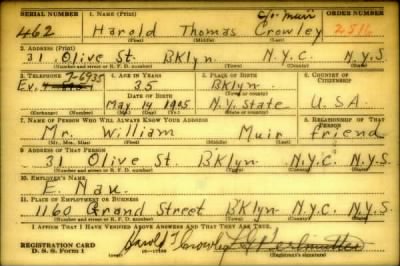 c/o Muir
SERIAL NUMBER 1. NAME (Print) ORDER NUMBER
462 Harold Thomas Crowley 2516
(First) (Middle) (Last)
2. ADDRESS (Print)
31 Olive St. BKlyn N.Y.C. N.Y.S
(Number and street or R. F. D. number) (Town) (County) (State)
3. TELEPHONE 4. AGE IN YEARS 5. PLACE OF BIRTH 6. COUNTRY OF CITIZENSHIP
Ev. 7-6935 35 BKlyn.
DATE OF BIRTH (Town or county)
May 14 1905 N.Y. State U.S.A.
(Exchange) (Number) (Mo.) (Day) (Yr.) (State or country)
7. NAME OF PERSON WHO WILL ALWAYS KNOW YOUR ADDRESS 8. RELATIONSHIP OF THAT PERSON
Mr. William Muir friend
(Mr., Mrs., Miss) (First) (Middle) (Last)
9. ADDRESS OF THAT PERSON
31 Olive St. BKlyn N.Y.C. N.Y.S
(Number and street or R. F. D. number) (Town) (County) (State)
10. EMPLOYER'S NAME
E. Nau.
11. PLACE OF EMPLOYMENT OR BUSINESS
1160 Grand Street BKlyn N.Y.C. N.Y.S
(Number and street or R. F. D. number) (Town) (County) (State)
I AFFIRM THAT I HAVE VERIFIED ABOVE ANSWERS AND THAT THEY ARE TRUE.
REGISTRATION CARD
D. S. S. Form 1 Harold T Crowley
(Registrant's signature)